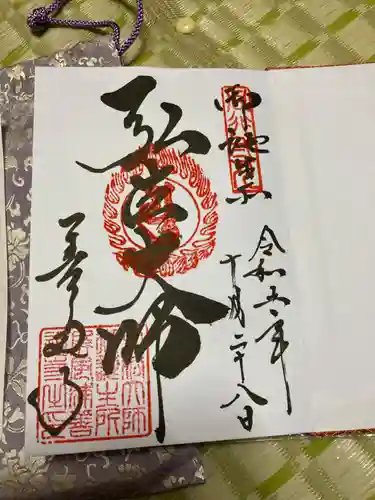 御誕生所
令和五年
十月二十八日
弘法大師
善通寺